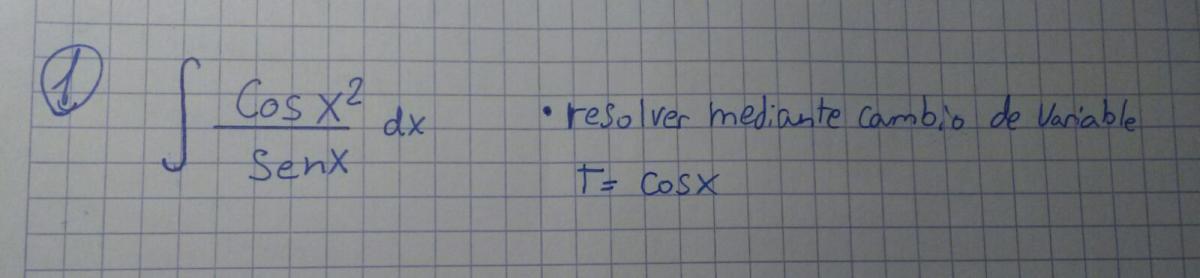 1
∫ Cos x² / Senx dx
• resolver mediante cambio de Variable
T= Cosx